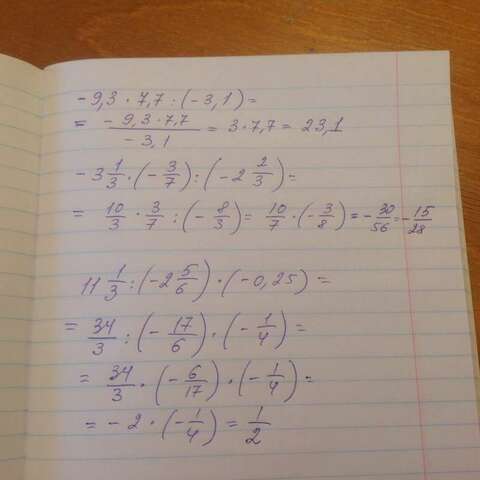 - 9,3 · 7,7 : (- 3,1) =
= \frac{- 9,3 · 7,7}{- 3,1} = 3 · 7,7 = 23,1
- 3 \frac{1}{3} · (- \frac{3}{7}) : (- 2 \frac{2}{3}) =
= \frac{10}{3} · \frac{3}{7} : (- \frac{8}{3}) = \frac{10}{7} · (- \frac{3}{8}) = - \frac{30}{56} = - \frac{15}{28}
11 \frac{1}{3} : (- 2 \frac{5}{6}) · (- 0,25) =
= \frac{34}{3} : (- \frac{17}{6}) · (- \frac{1}{4}) =
= \frac{34}{3} · (- \frac{6}{17}) · (- \frac{1}{4}) =
= - 2 · (- \frac{1}{4}) = \frac{1}{2}